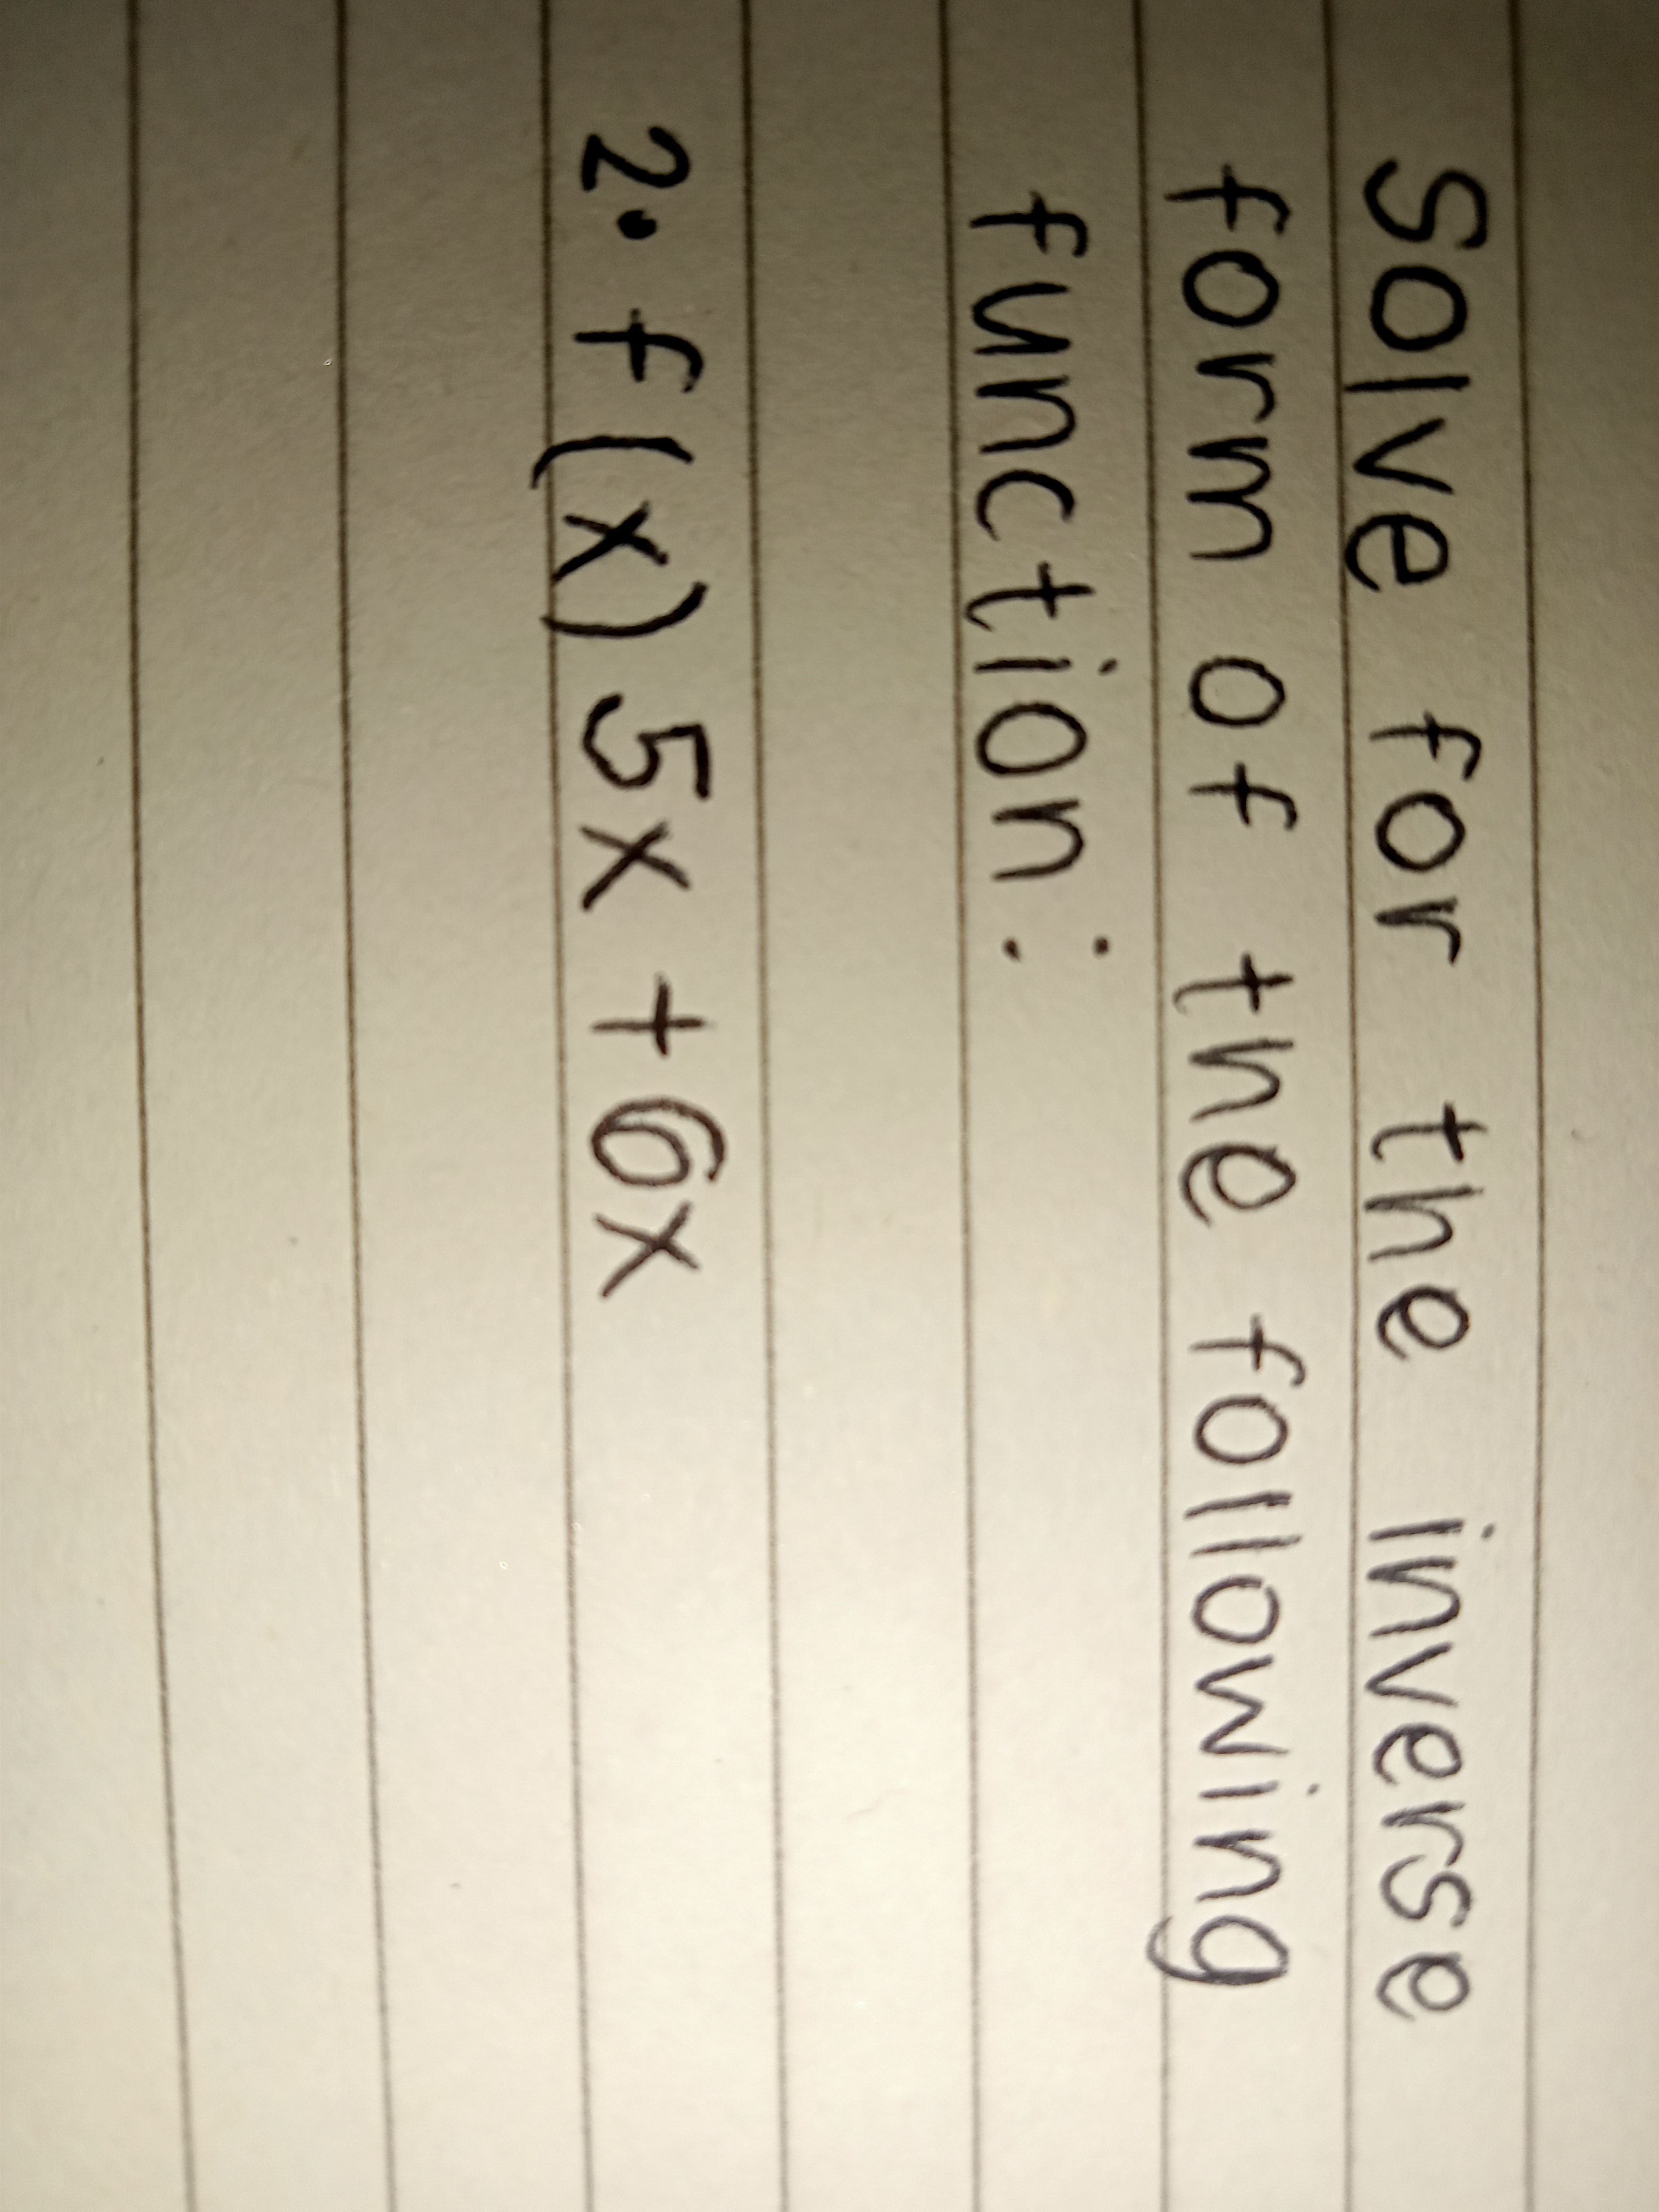 Solve for the inverse
form of the following
function:
2. f(x) 5x + 6x